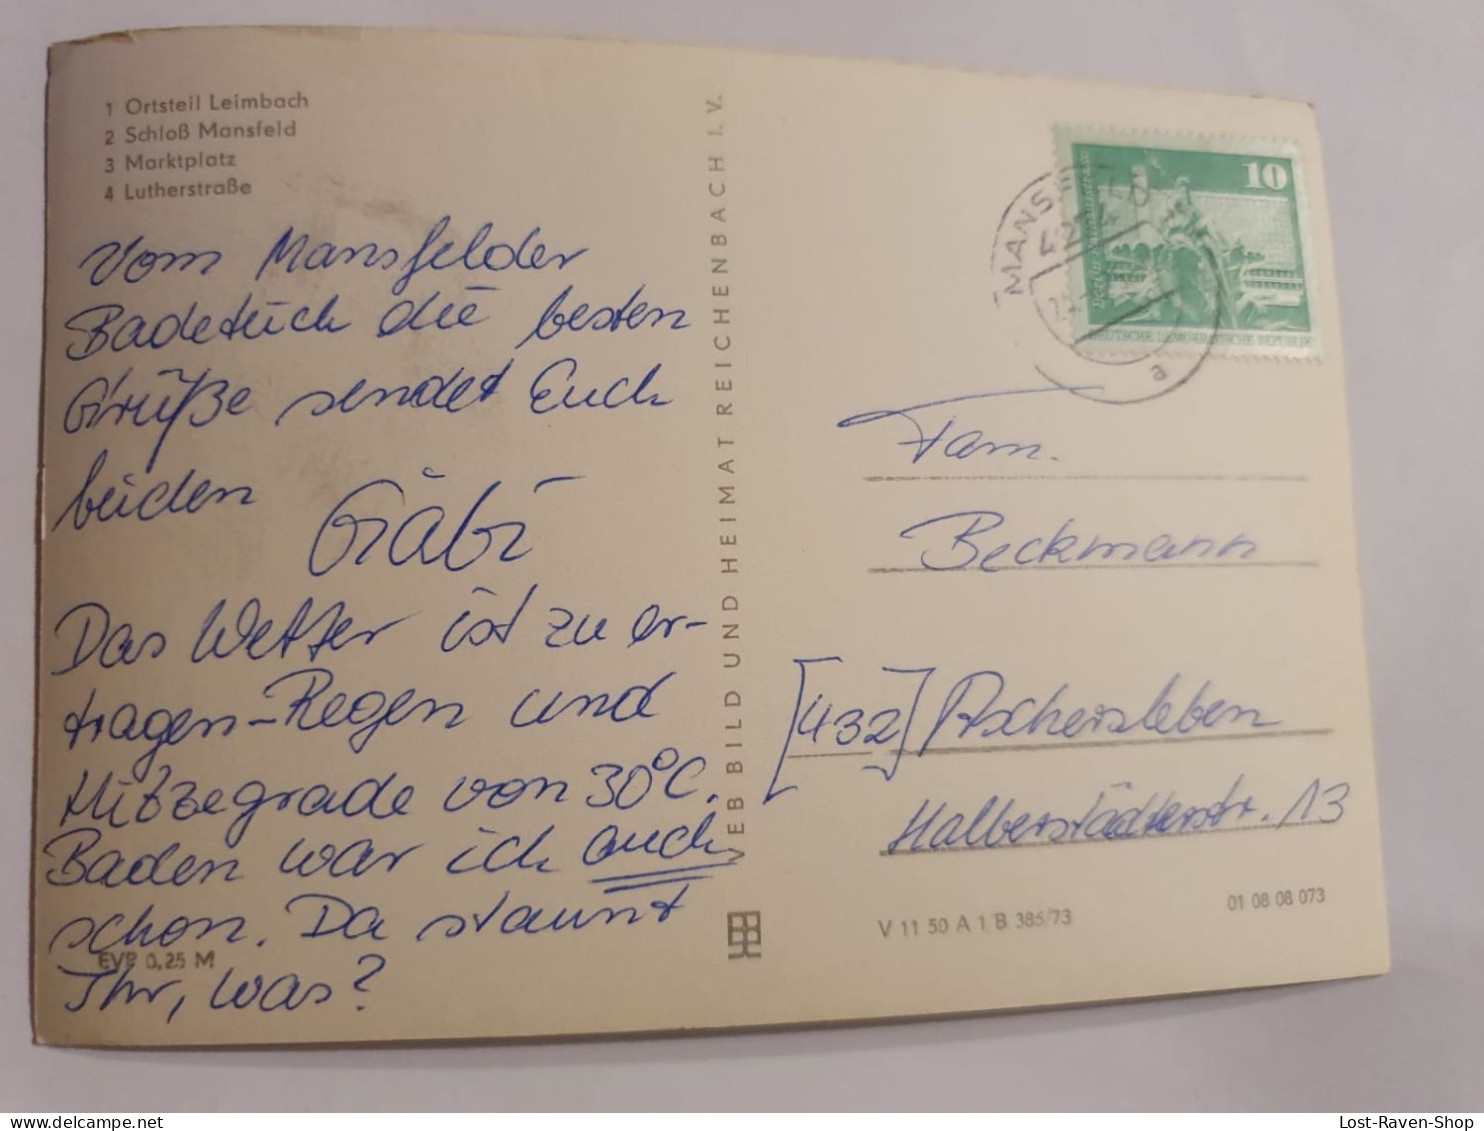 1 Ortsteil Leimbach
2 Schloß Mansfeld
3 Marktplatz
4 Lutherstraße
Vom Mansfelder
Badetuch die besten
Grüße sendet Euch
beiden
Gabi
Das Wetter ist zu er-
tragen - Regen und
Hitzegrade von 30°C.
Baden war ich auch
schon. Da staunt
Ihr, was?
EVP 0,25 M
VEB BILD UND HEIMAT REICHENBACH I. V.
10
DEUTSCHE DEMOKRATISCHE REPUBLIK
MANSFELD
a
Fam.
Beckmann
[432] Aschersleben
Halberstädterstr. 13
V 11 50 A 1/B 386/73
01 08 08 073
Lost-Raven-Shop